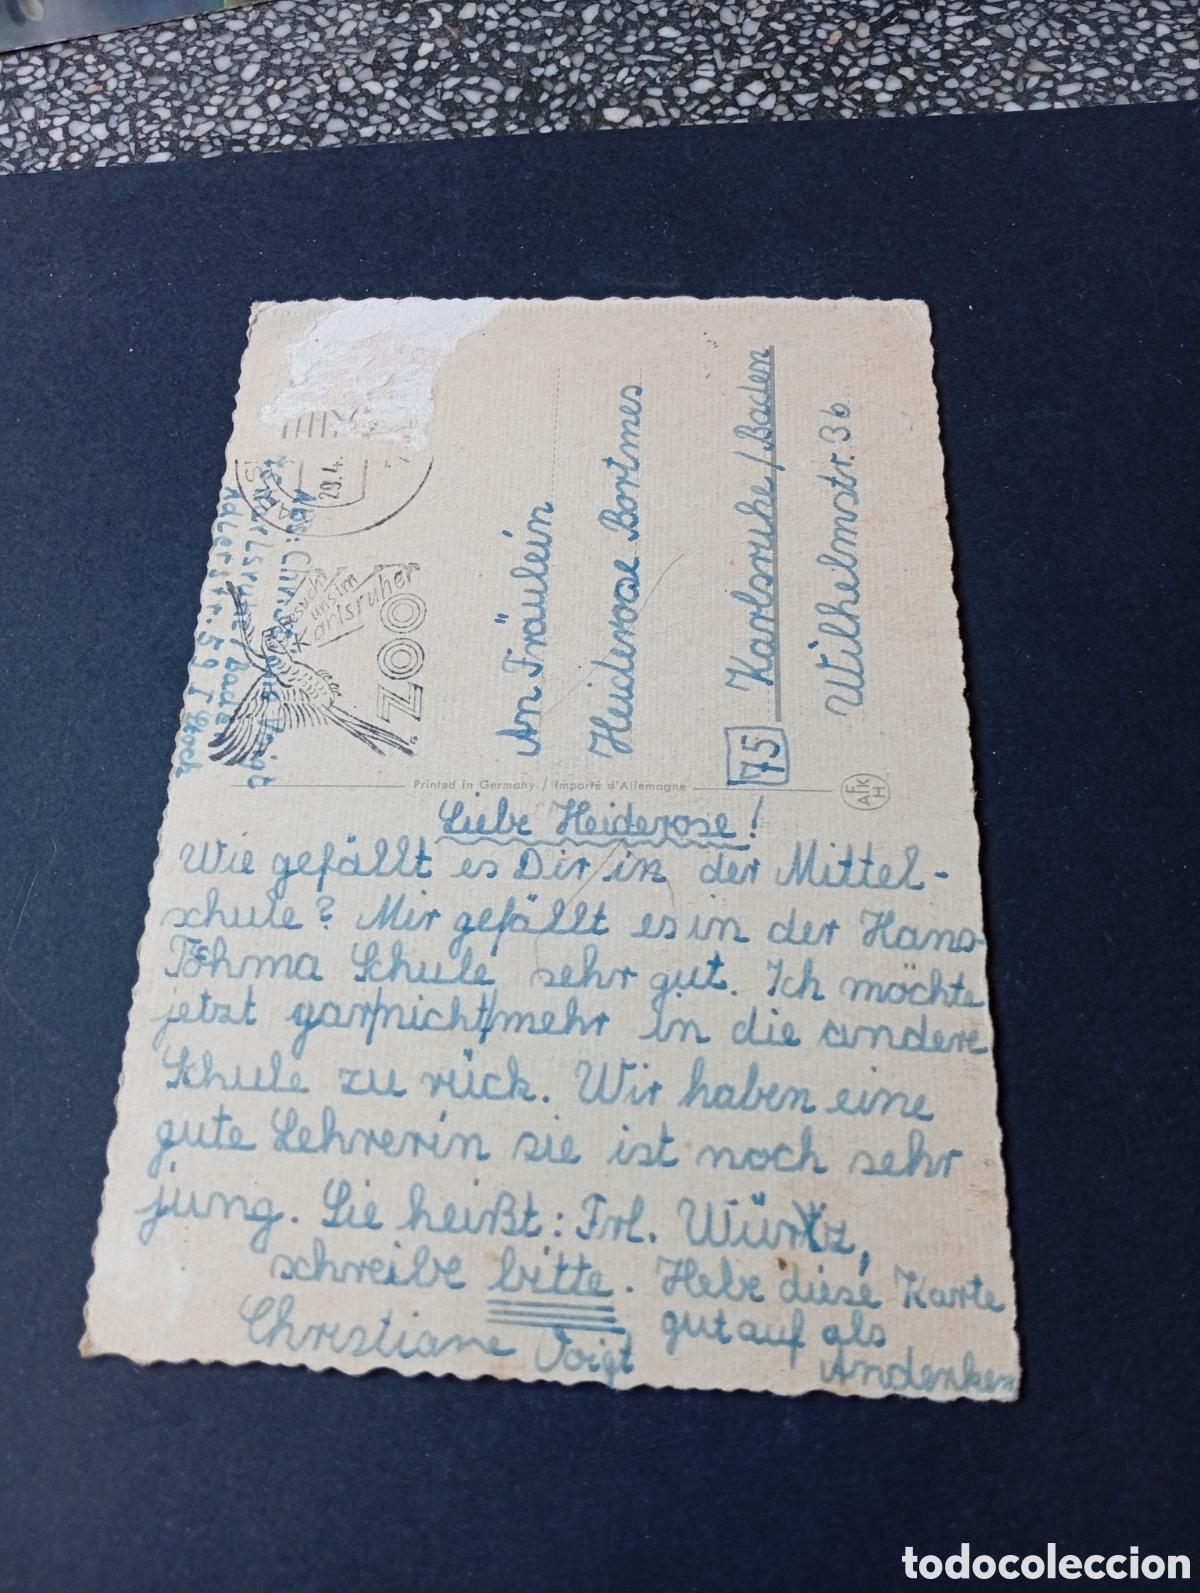 Abs: Christiane Voigt
75 Karlsruhe / Baden
Adlerstr. 59 I Stock
29.4.
Besucht
uns im
Karlsruher
ZOO
An Fräulein
Heiderose Bortmes
75 Karlsruhe / Baden
Wilhelmstr. 36
Printed in Germany / Importé d'Allemagne
AFKH
Liebe Heiderose!
Wie gefällt es Dir in der Mittel-
schule? Mir gefällt es in der Hans-
Tohma Schule sehr gut. Ich möchte
jetzt gar/nicht/mehr in die andere
Schule zu rück. Wir haben eine
gute Lehrerin sie ist noch sehr
jung. Sie heißt: Frl. Würtz,
schreibe bitte. Hebe diese Karte
gut auf als
Andenken
Christiane Voigt
todocoleccion